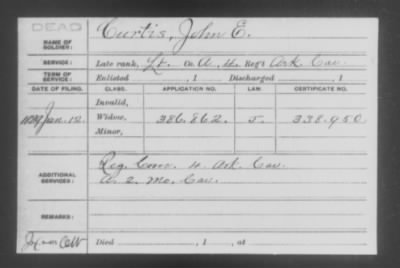 DEAD
NAME OF SOLDIER: Curtis, John E.
SERVICE: Late rank, Lt. Co. A, 4. Reg't Ark. Cav.
TERM OF SERVICE: Enlisted , 1 Discharged , 1
DATE OF FILING. CLASS. APPLICATION NO. LAW. CERTIFICATE NO.
Invalid,
Jan. 12 Widow, 386.862. 338.950
Minor,
ADDITIONAL SERVICES: Reg. Com. 4. Ark. Cav.
A. 2. Mo. Cav.
REMARKS:
Died , 1 , at